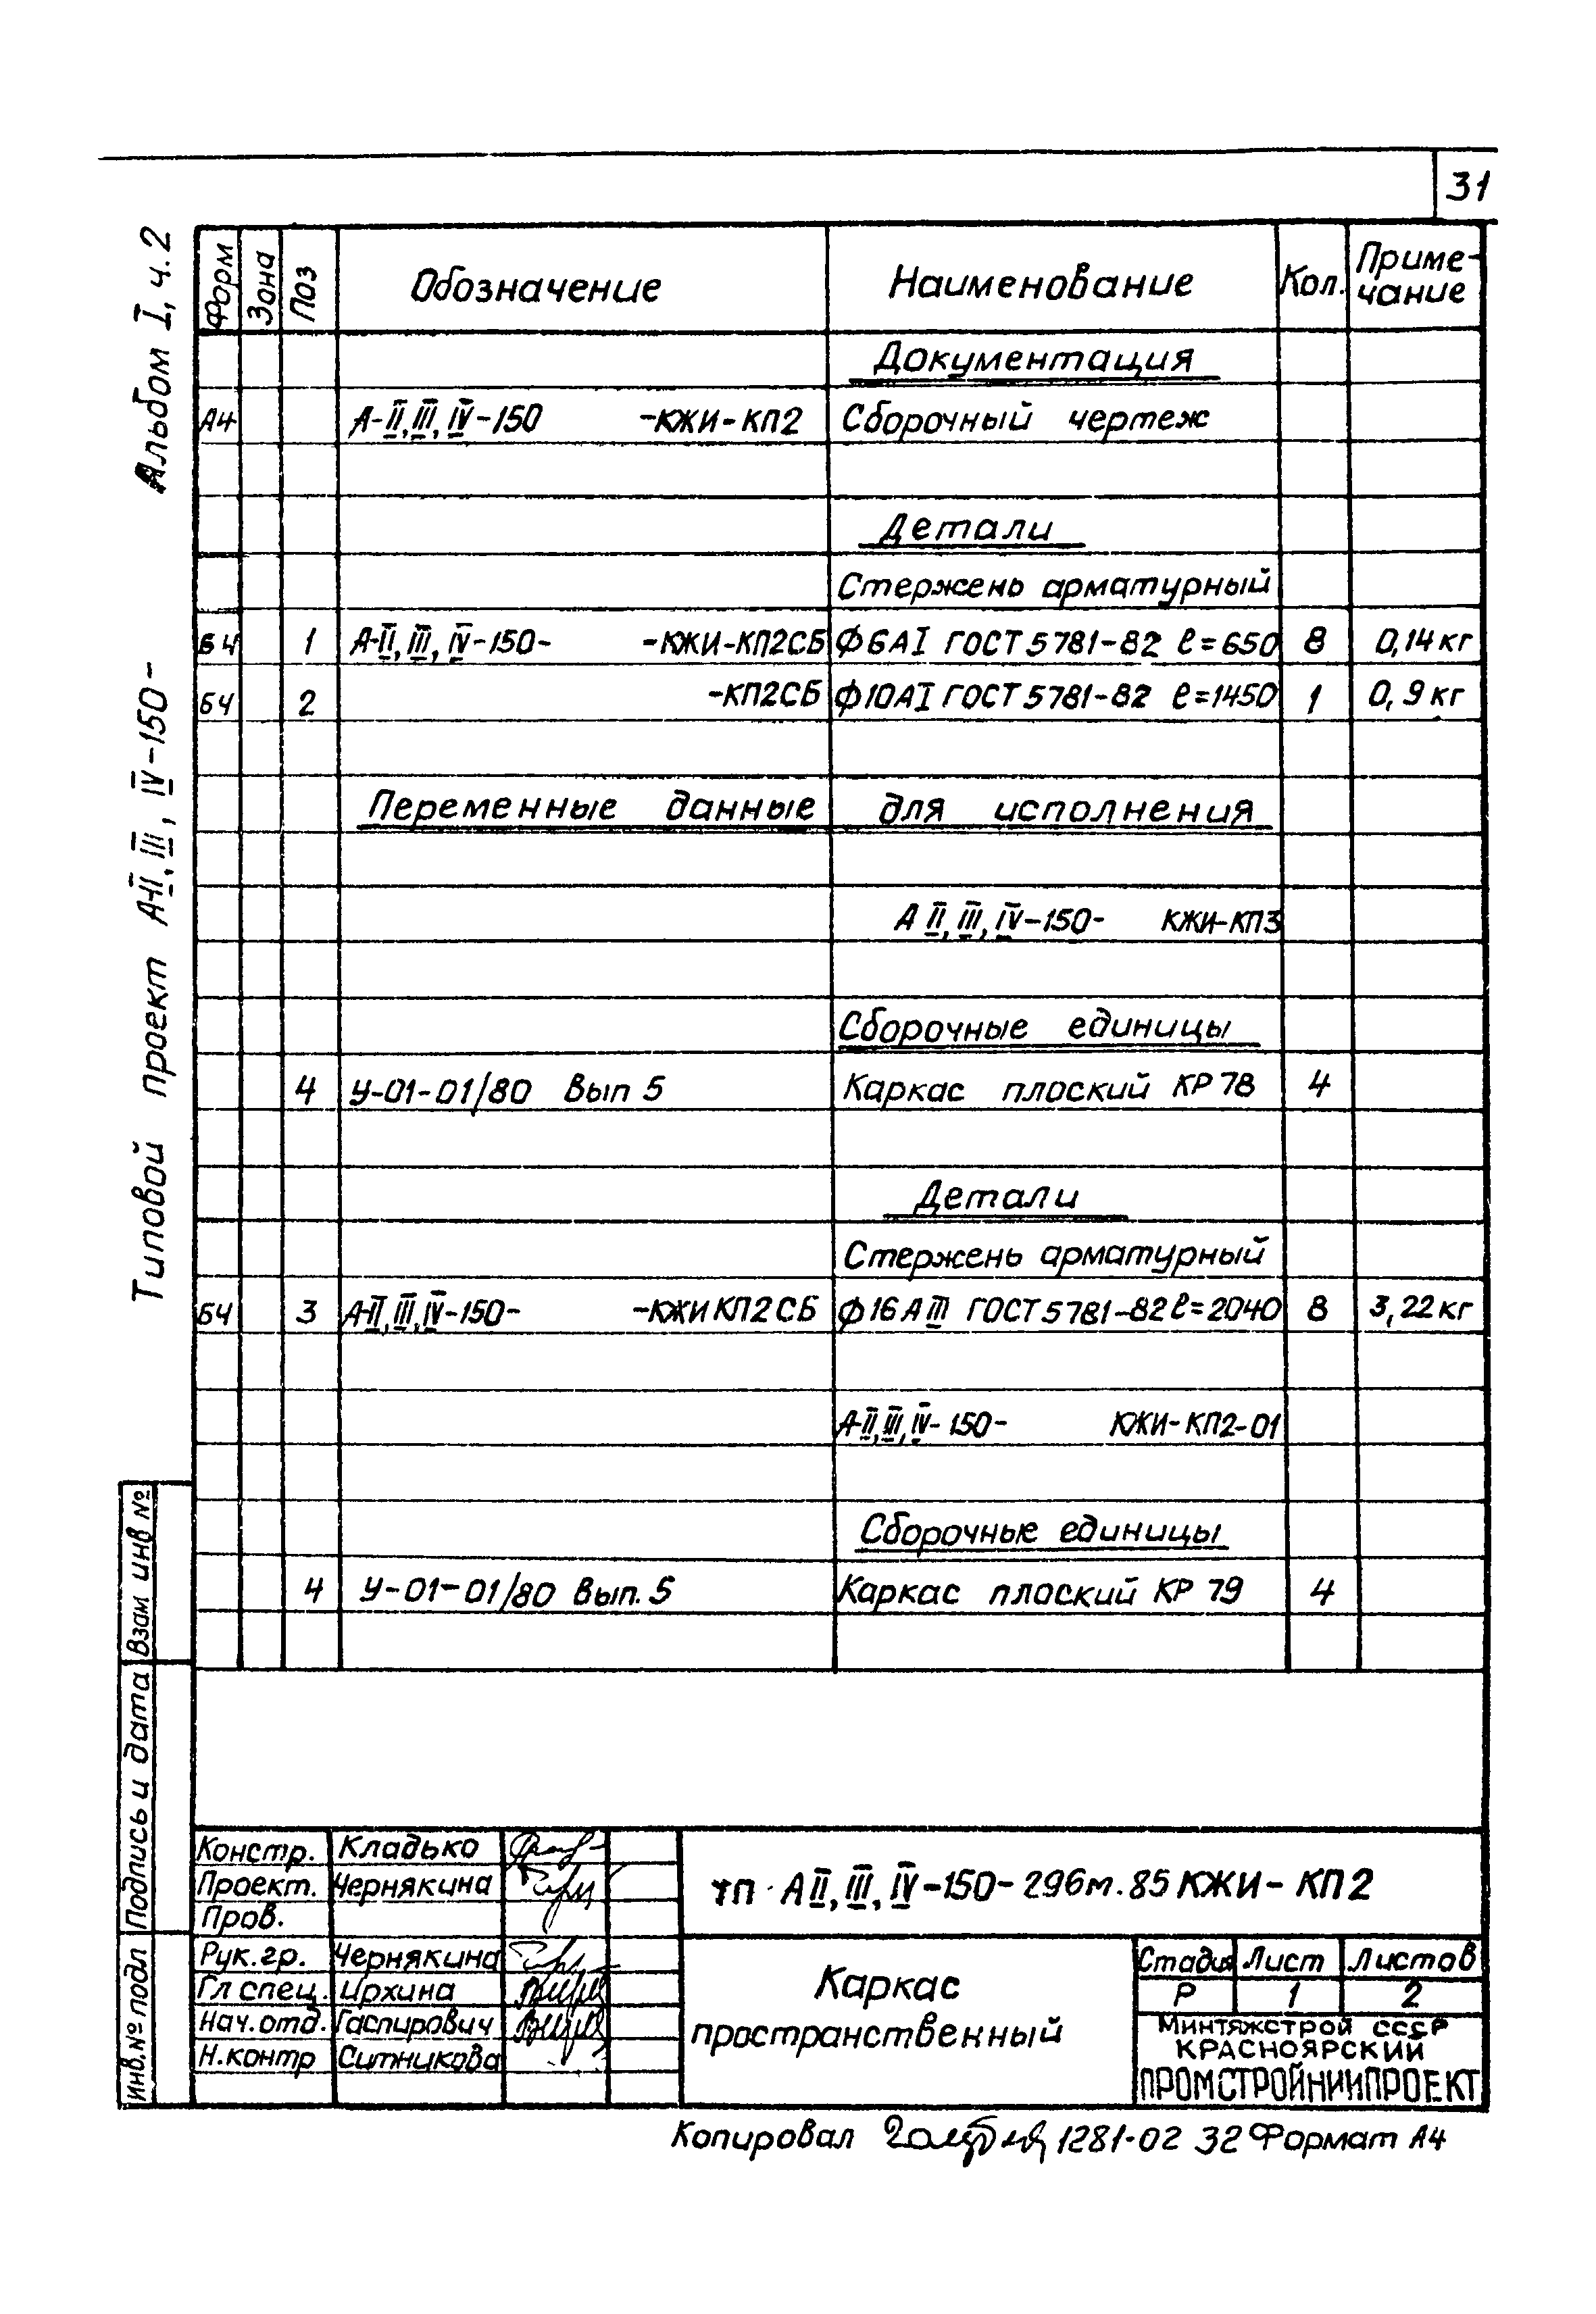 31
Альбом I, ч.2
Типовой проект А-II, III, IV-150-
Форм Зона Поз Обозначение Наименование Кол. Приме-
чание
Документация
А4 А-II, III, IV-150 -КЖИ-КП2 Сборочный чертеж
Детали
Стержень арматурный
БЧ 1 А-II, III, IV-150- -КЖИ-КП2СБ ф6АI ГОСТ 5781-82 ℓ=650 8 0,14кг
БЧ 2 -КП2СБ ф10АI ГОСТ 5781-82 ℓ=1450 1 0,9кг
Переменные данные для исполнения
А II, III, IV-150- КЖИ-КП3
Сборочные единицы
4 У-01-01/80 Вып 5 Каркас плоский КР 78 4
Детали
Стержень арматурный
БЧ 3 А-II, III, IV-150- -КЖИ КП2СБ ф16 АIII ГОСТ 5781-82 ℓ=2040 8 3,22кг
А-II, III, IV-150- КЖИ-КП2-01
Сборочные единицы
4 У-01-01/80 Вып. 5 Каркас плоский КР 79 4
Взам инв №
Подпись и дата
Инв. № подл
Констр. Кладько
Проект. Чернякина
Пров.
Рук. гр. Чернякина
Гл спец. Ирхина
Нач. отд. Гаспирович
Н. контр Ситникова
тп А II, III, IV-150-296м.85 КЖИ-КП2
Каркас
пространственный
Стадия Лист Листов
Р 1 2
Минтяжстрой СССР
КРАСНОЯРСКИЙ
ПРОМСТРОЙНИИПРОЕКТ
Копировал 1281-02 32 Формат А4